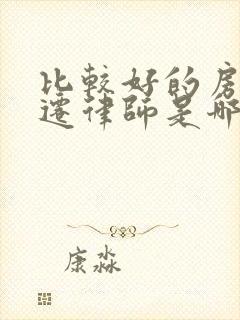 比較好的房
遷律師是哪
康淼